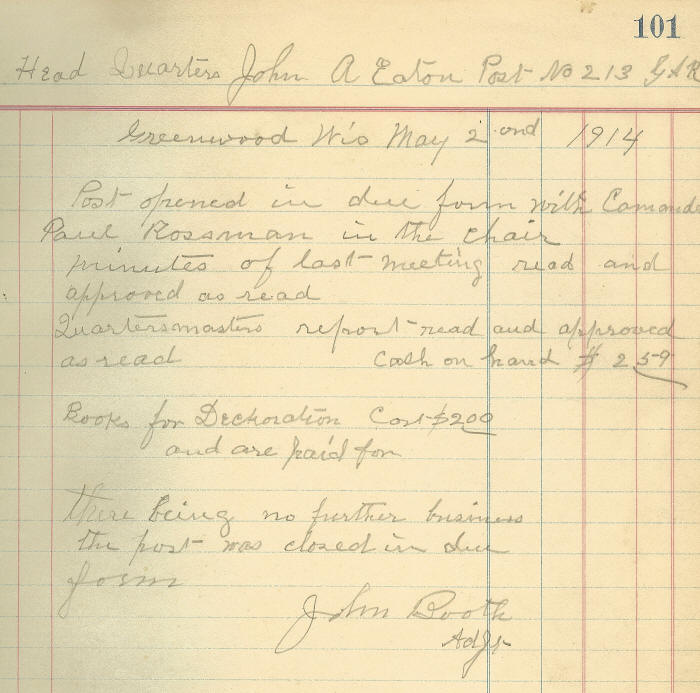 101
Head Quarters John A Eaton Post No 213 GAR
Greenwood Wis May 2 ond 1914
Post opened in due form with Comande
Paul Rossman in the chair
minutes of last meeting read and
approved as read
Quartersmasters report read and approved
as read Cash on hand $ 2 59
Books for Deckoration Cost $2 00
and are paid for
there being no further business
the post was closed in due
form
John Booth
Adjt